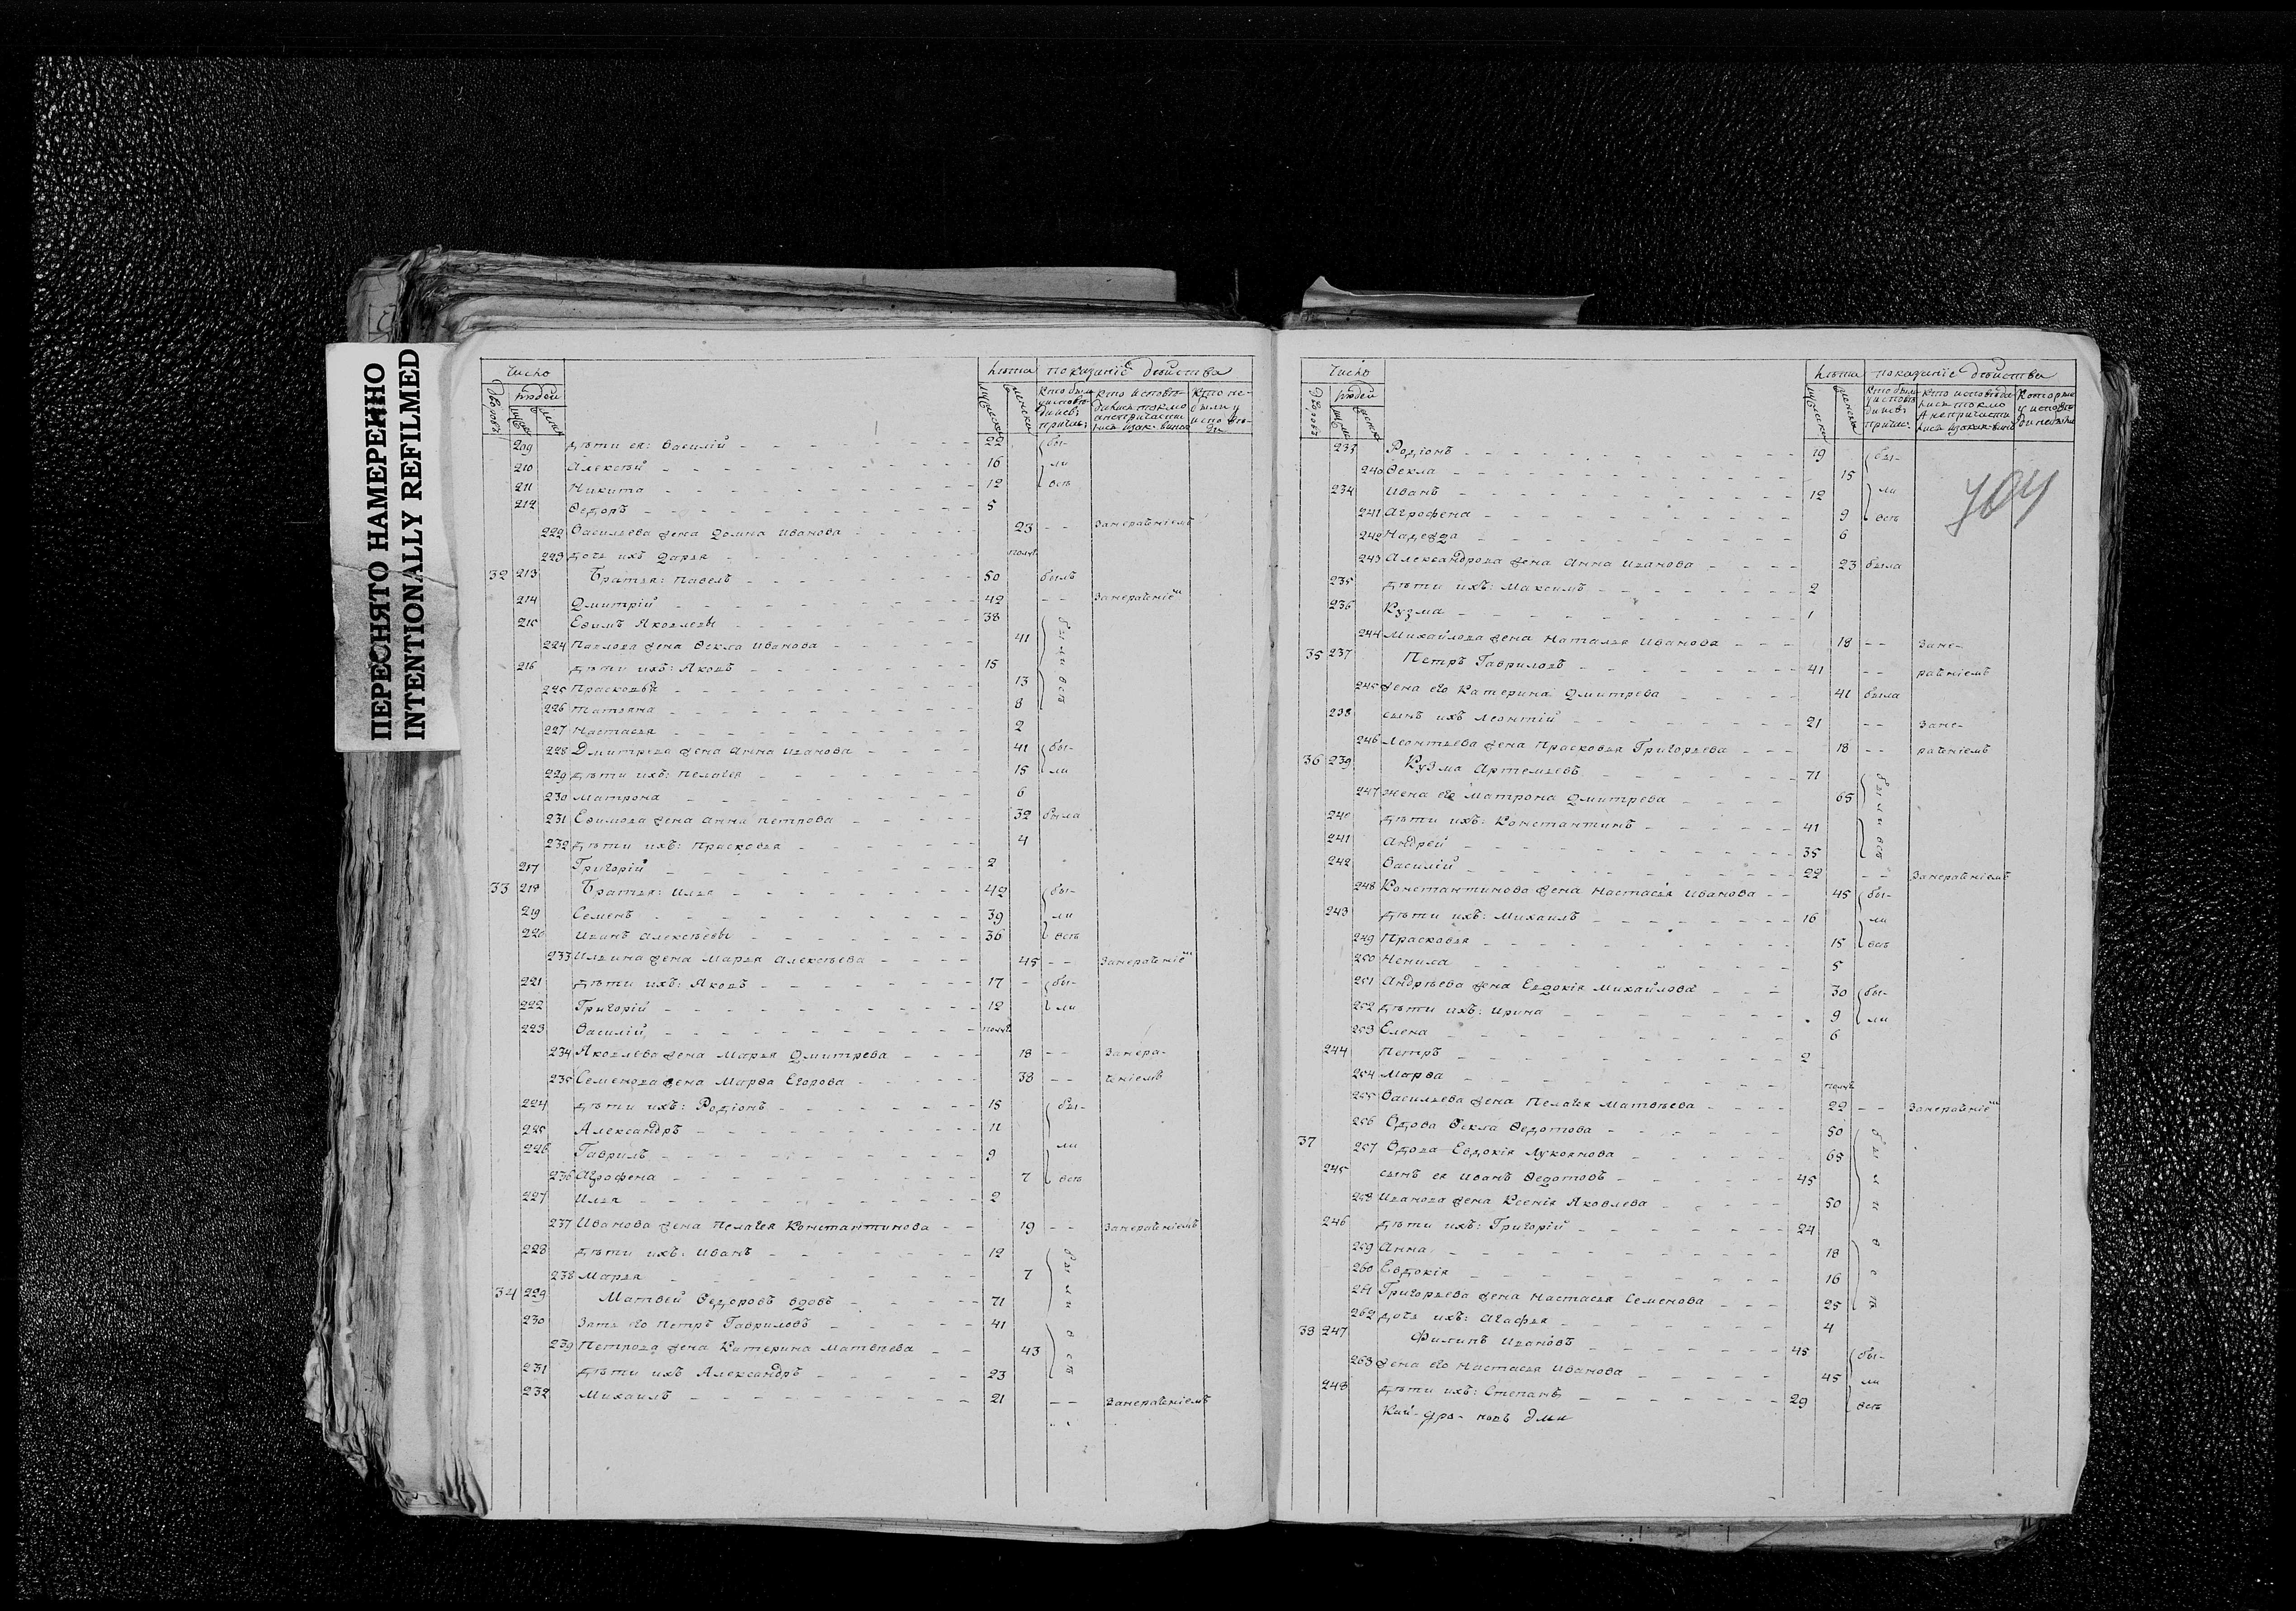 ПЕРЕСНЯТО НАМЕРЕННО
INTENTIONALLY REFILMED
Число Лѣта показаніе дѣйства
Дворовъ людей мужеска женска
209 дѣти ея: Василій 22 бы-
210 Алексѣй 16 ли
211 Никита 12 всѣ
212 Ѳедоръ 5
222 Васильева жена Домна Иванова 23 - - Занерадѣніемъ
223 дочь ихъ Дарья полуг
32 213 Братья: Павелъ 50 былъ
214 Дмитрій 42 - - Занерадѣніем
215 Ефимъ Яковлевы 38
224 Павлова жена Ѳекла Иванова 41 были всѣ
216 дѣти ихъ: Яковъ 15
225 Прасковья 13
226 Татьяна 8
227 Настасья 2
228 Дмитрева жена Анна Иванова 41 бы-
229 дѣти ихъ: Пелагея 15 ли
230 Матрона 6
231 Ефимова жена Анна Петрова 32 была
232 дѣти ихъ: Прасковья 4
217 Григорій 2
33 218 Братья: Илья 42 бы-
219 Семенъ 39 ли
220 Иванъ Алексѣевы 36 всѣ
233 Ильина жена Марья Алексѣева 45 - - Занерадѣніем
221 дѣти ихъ: Яковъ 17 - бы-
222 Григорій 12 ли
223 Василій полуг
234 Яковлева жена Марья Дмитрева 18 - - Занера-
235 Семенова жена Марфа Егорова 38 - - дѣніемъ
224 дѣти ихъ: Родіонъ 15 бы-
225 Александръ 11
226 Гаврилъ 9 ли
236 Агрофена 7 всѣ
227 Илья 2
237 Иванова жена Пелагея Константинова 19 - - Занерадѣніемъ
228 дѣти ихъ: Иванъ 12 были
238 Марья 7
34 229 Матвей Ѳедоровъ вдовъ 71
230 Зять его Петръ Гавриловъ 41
239 Петрова жена Катерина Матвѣева 43 всѣ
231 дѣти ихъ Александръ 23
232 Михаилъ 21 - - Занерадѣніемъ
Число Лѣта показаніе дѣйства
Дворовъ людей мужеска женска
233 Родіонъ 19 бы-
240 Ѳекла 15
234 Иванъ 12 ли
241 Агрофена 9 всѣ
242 Надежда 6
243 Александрова жена Анна Иванова 23 была
235 дѣти ихъ: Максимъ 2
236 Кузма 1
244 Михайлова жена Наталья Иванова 18 - - Зане-
35 237 Петръ Гавриловъ 41 - - радѣніемъ
245 жена его Катерина Дмитрева 41 была
238 сынъ ихъ Леонтій 21 - - Зане-
246 Леонтьева жена Прасковья Григорьева 18 - - радѣніемъ
36 239 Кузма Артемьевъ 71
247 жена его Матрона Дмитрева 65 были всѣ
240 дѣти ихъ: Константинъ 41
241 Андрей 35
242 Василій 22 - - Занерадѣніемъ
248 Константинова жена Настасья Иванова 45 бы-
243 дѣти ихъ: Михаилъ 16 ли
249 Прасковья 15 всѣ
250 Ненила 5
251 Андрѣева жена Евдокія Михайлова 30 бы-
252 дѣти ихъ: Ирина 9 ли
253 Елена 6
244 Петръ 2
254 Марфа полуг
255 Васильева жена Пелагея Матвѣева 22 - - Занерадѣніем
256 Вдова Ѳекла Ѳедотова 50
37 257 Вдова Евдокія Лукоянова 65 были всѣ
245 сынъ ея Иванъ Ѳедотовъ 45
258 Иванова жена Ксенія Яковлева 50
246 дѣти ихъ: Григорій 24
259 Анна 18
260 Евдокія 16
261 Григорьева жена Настасья Семенова 25
262 дочь ихъ: Агафья 4
38 247 Филипъ Ивановъ 45 бы-
263 жена его Настасья Иванова 45 ли
248 дѣти ихъ: Степанъ 29 всѣ